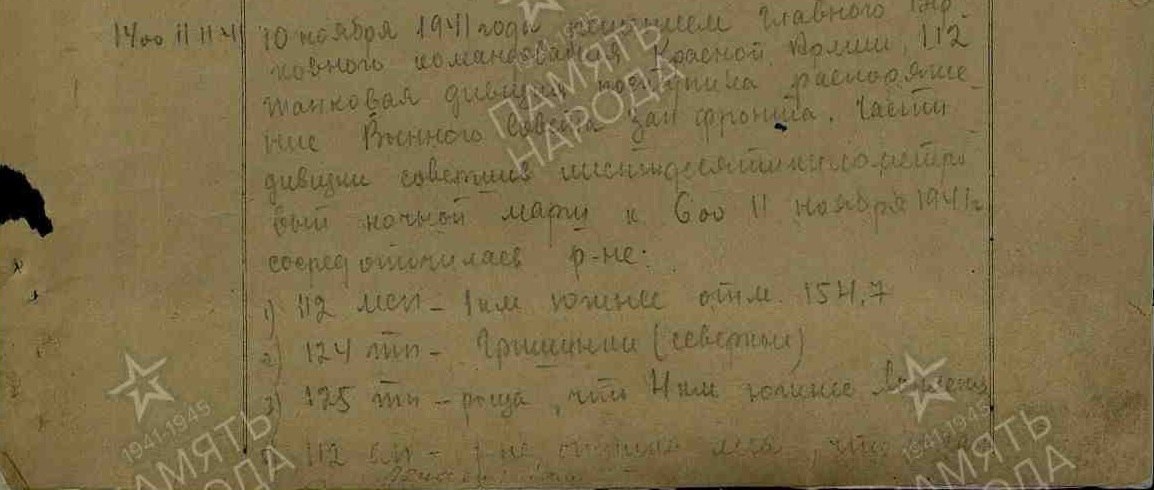 14оо 11 11 41 10 ноября 1941 года решением Главного Вер
ховного командования Красной Армии, 112
танковая дивизия поступила распоряже
ние Военного Совета Зап фронта. Части
дивизии совершив шестидесятикилометро
вый ночной марш к 6оо 11 ноября 1941г
сосредоточилась р-не:
1) 112 мсп - 1 км южнее отм. 154,7
2) 124 тп - Гришинки (северные)
3) 125 тп - роща, что 4 км южнее
112 - р-не леса, что
ПАМЯТЬ
НАРОДА
1941-1945
ПАМЯТЬ
НАРОДА
1941-1945
ПАМЯТЬ
НАРОДА